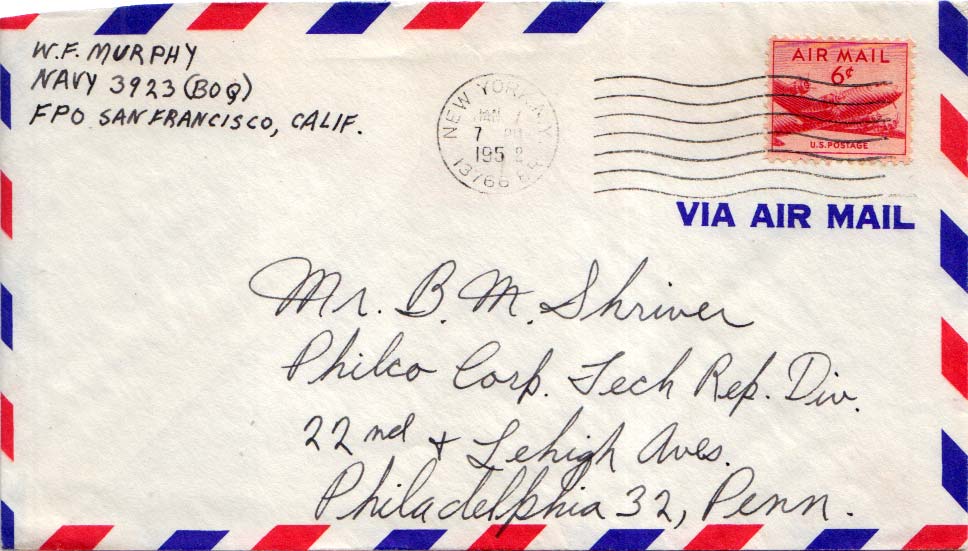 W.F. MURPHY
NAVY 3923 (BOQ)
FPO SAN FRANCISCO, CALIF.
NEW YORK, N.Y.
JAN 7
7 PM
1952
13766
AIR MAIL
6¢
U.S. POSTAGE
VIA AIR MAIL
Mr. B. M. Shriver
Philco Corp. Tech Rep. Div.
22nd + Lehigh Aves.
Philadelphia 32, Penn.